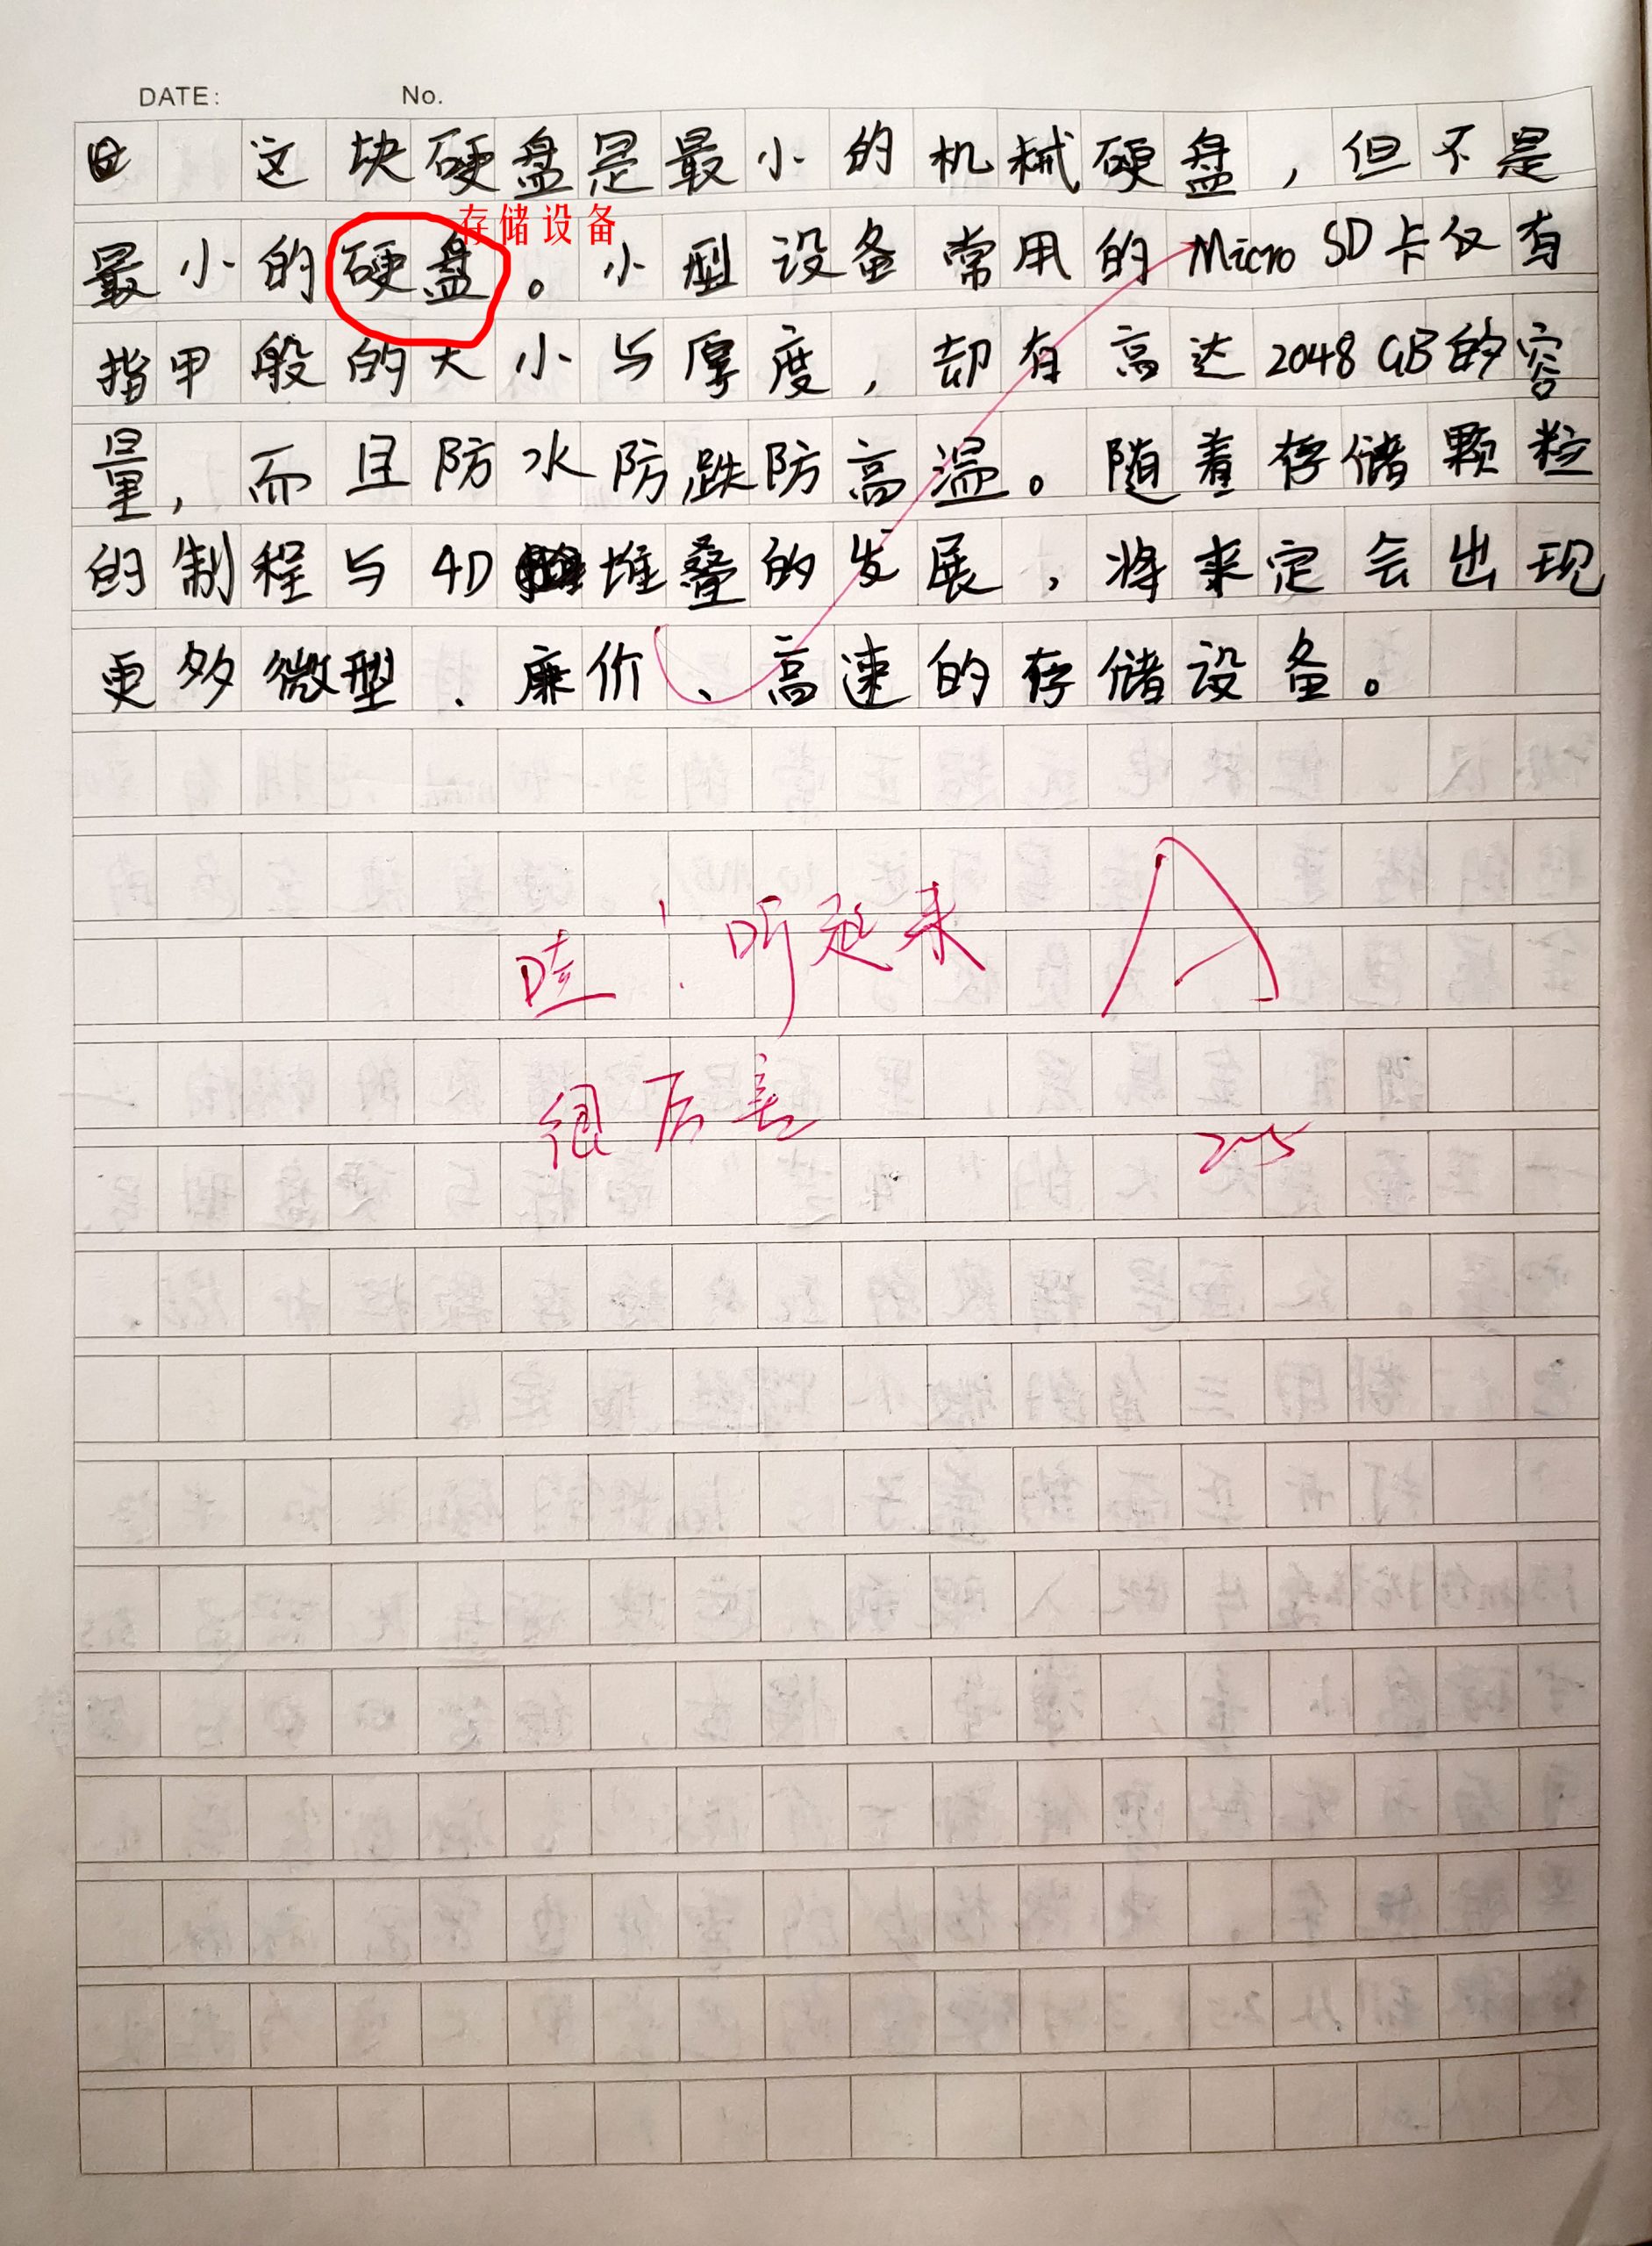 DATE: No.
这块硬盘是最小的机械硬盘，但不是
存储设备
最小的硬盘。小型设备常用的Micro SD卡仅有
指甲般的大小与厚度，却有高达2048GB的容
量，而且防水防跌防高温。随着存储颗粒
的制程与4D堆叠的发展，将来定会出现
更多微型、廉价、高速的存储设备。
哇！听起来
很厉害
A